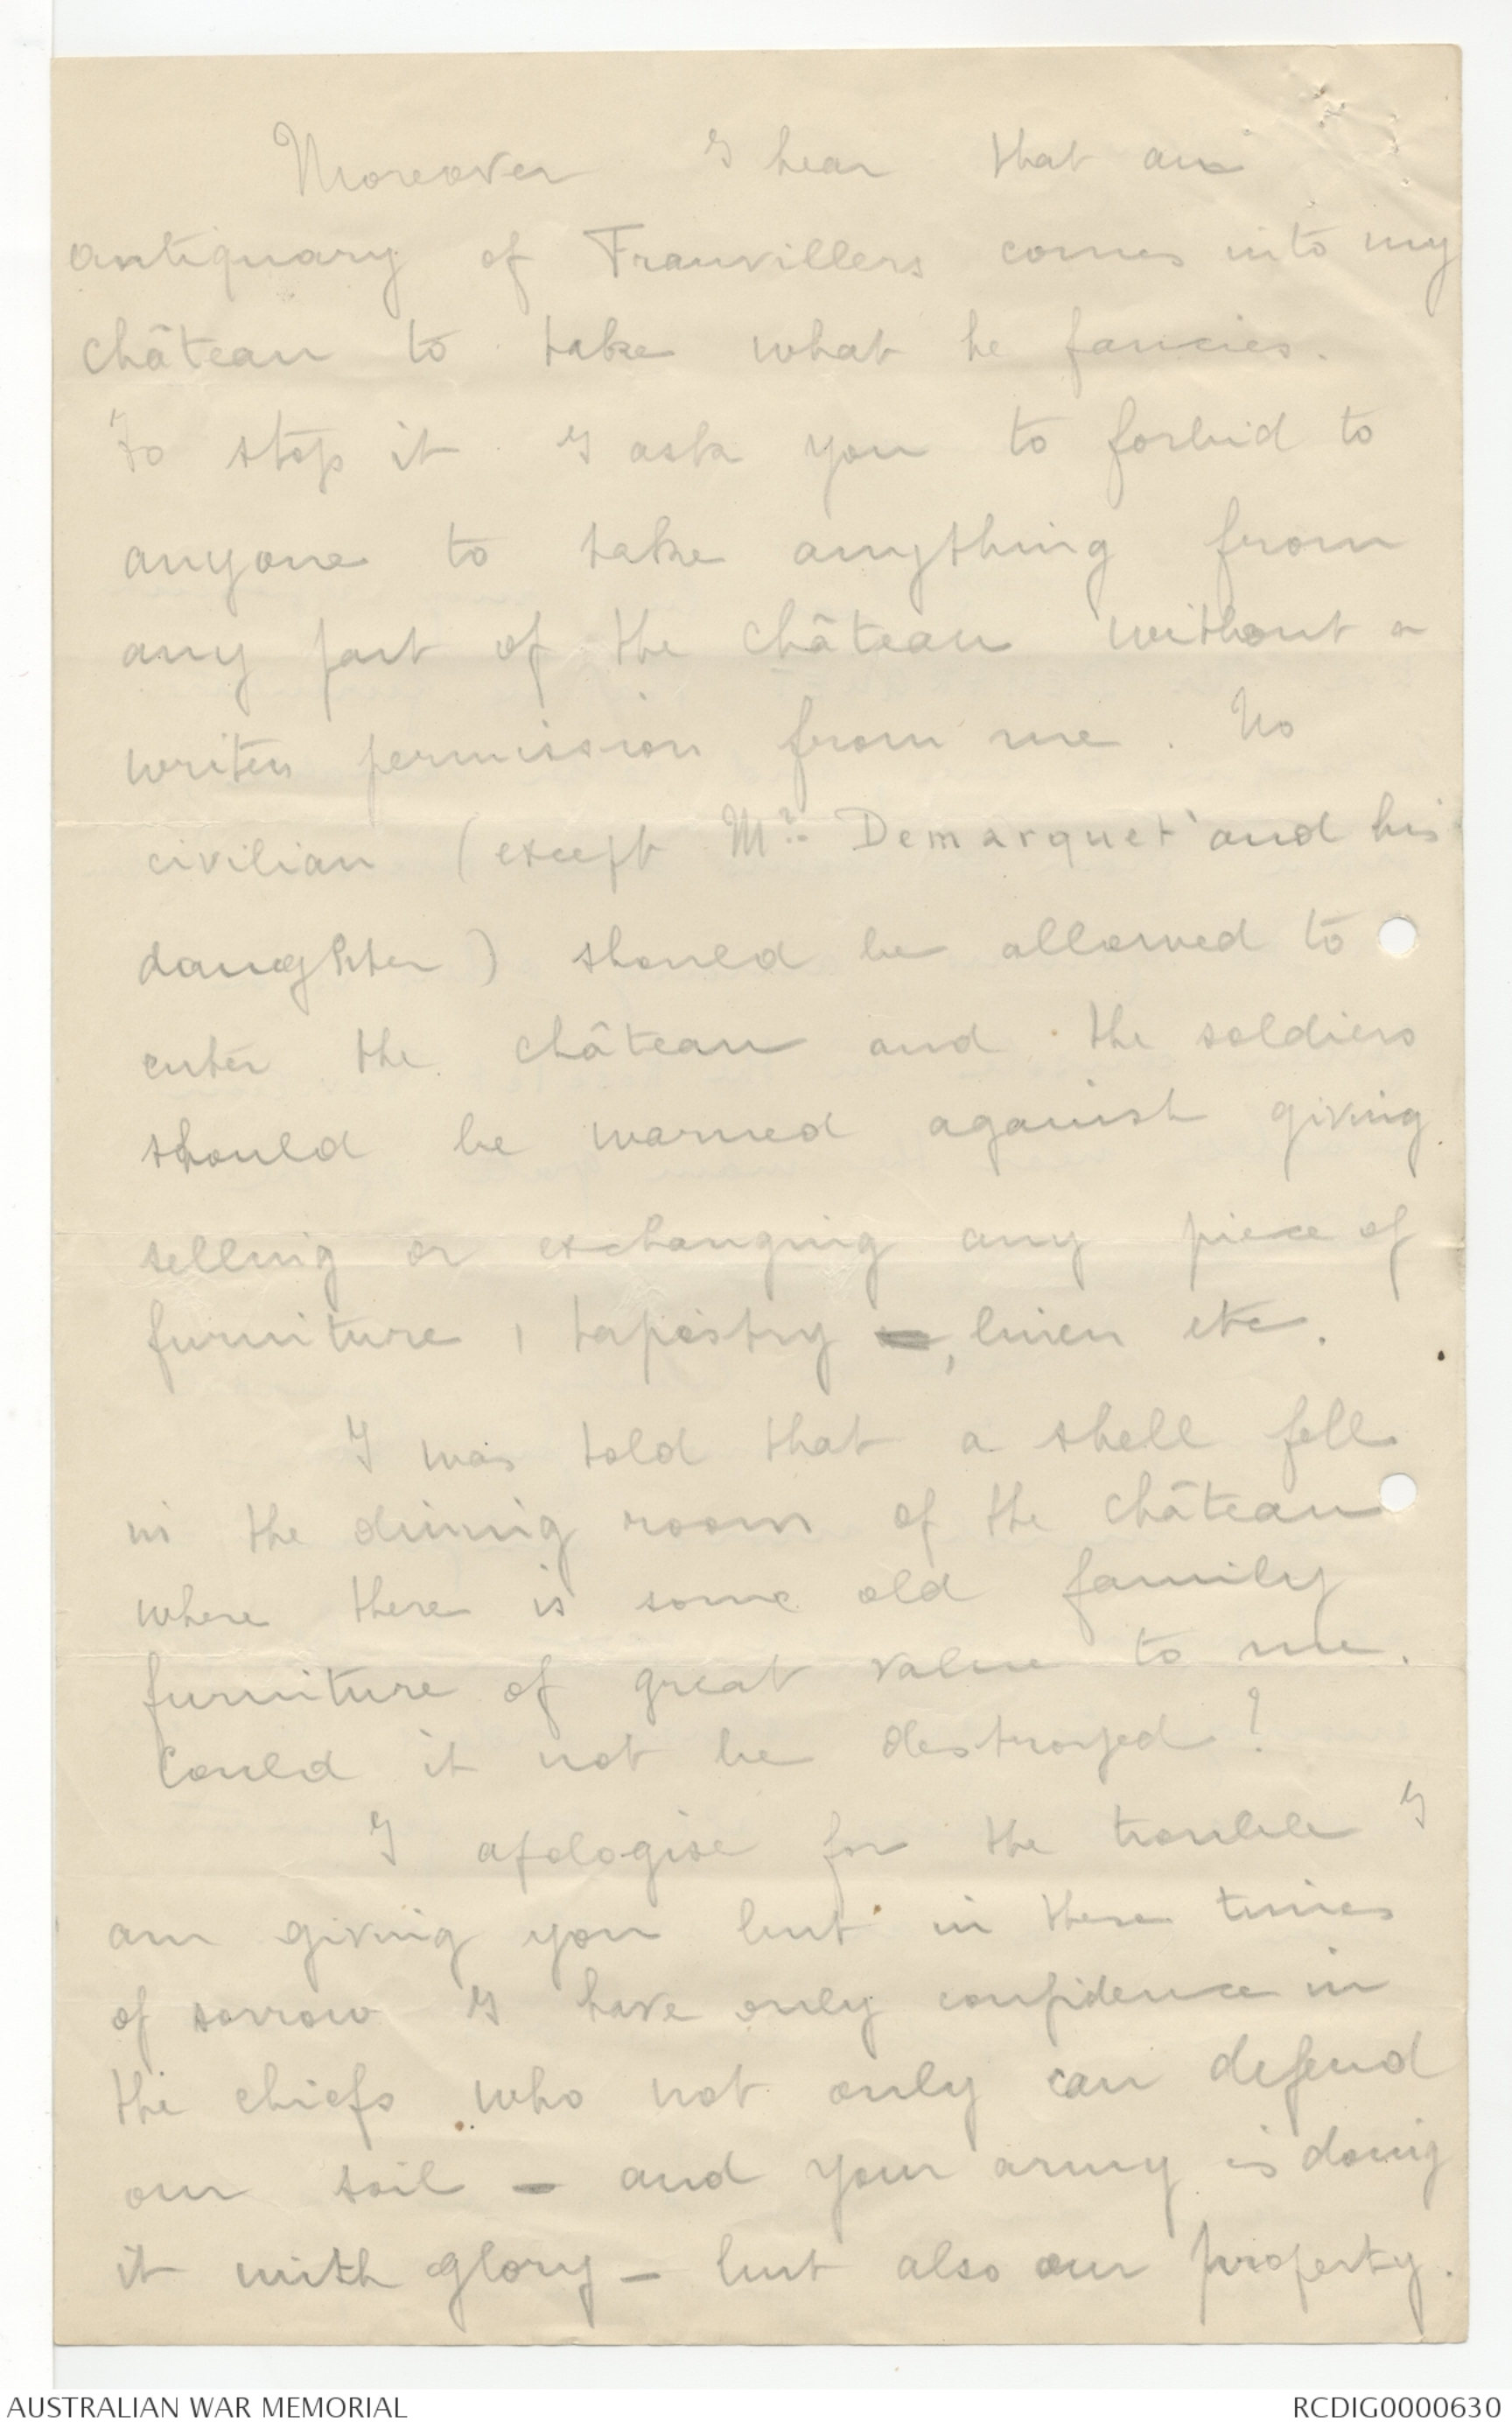 Moreover I hear that an
antiquary of Franvillers comes into my
château to take what he fancies.
To stop it I ask you to forbid to
anyone to take anything from
any part of the château without a
writen permission from me. No
civilian (except Mr. Demarquet and his
daughter) should be allowed to
enter the château and the soldiers
should be warned against giving
selling or exchanging any piece of
furniture, tapestry, linen etc.
I was told that a shell fell
in the dining room of the château
where there is some old family
furniture of great value to me.
Could it not be destroyed?
I apologise for the trouble I
am giving you but in these times
of sorrow I have only confidence in
the chiefs who not only can defend
our soil - and your army is doing
it with glory - but also our property.
AUSTRALIAN WAR MEMORIAL
RCDIG0000630